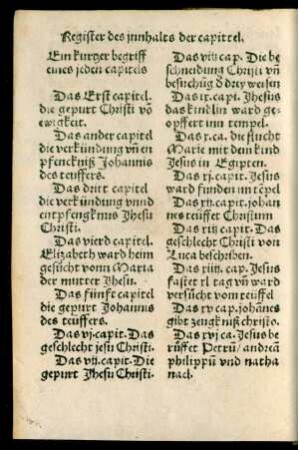 Register des innhalts der capittel.
Ein kurtzer begriff
eines jeden capitels
Das Erst capitel.
die gepurt Christi vō
ewigkeit.
Das ander capitel
die verkündung vn̄ en
pfenckniß Johannis
des teuffers.
Das dritt capitel
die verkündung vnnd
entpfengknus Jhesu
Christi.
Das vierd capitel.
Elizabeth ward heim
gesücht vonn Maria
der mutter Jhesu.
Das fünfft capitel
die gepurt Johannis
des teuffers.
Das vj. capit. Das
geschlecht jesu Christi.
Das vij. capit. Die
gepurt Jhesu Christi.
Das viij cap. Die be
schneidung Christi vn̄
besüchūg d drey weisen
Das ix. capi. Jhesus
das kindlin ward ge
opffert inn tempel.
Das x. ca. die flucht
Marie mit dem kind
Jesus in Egipten.
Das xj. capit. Jesus
ward funden im tēpel
Das xij. capit. johan
nes teüffet Christum
Das xiij capit. Das
geschlecht Christi von
Luca beschriben.
Das xiiij. cap. Jesus
fastet xl tag vn̄ ward
versücht vom teüffel
Das xv cap. johānes
gibt zeugkniß christo.
Das xvj ca. Jesus be
rüffet Petrū / andreā
philippū vnd natha
nael.